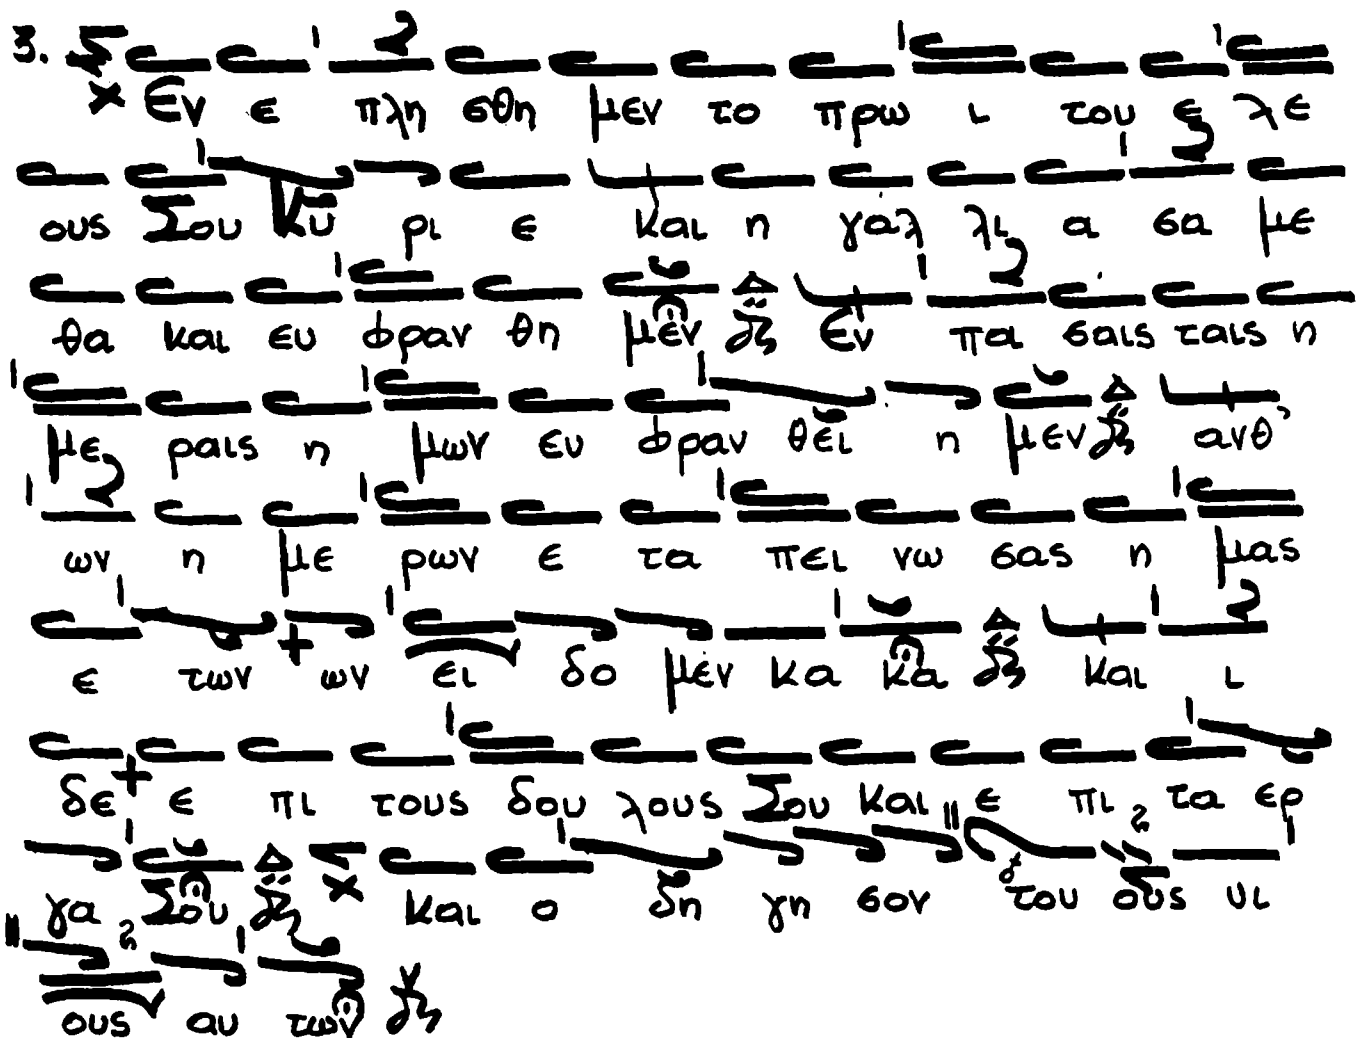 3. Εν ε πλη σθη μεν το πρω ι του ε λε
ους Σου Κυ ρι ε και η γαλ λι α σα με
θα και ευ φραν θη μεν Εν πα σαις ταις η
με ραις η μων ευ φραν θει η μεν ανθ'
ων η με ρων ε τα πει νω σας η μας
ε των ων ει δο μεν κα κα και ι
δε ε πι τους δου λους Σου και ε πι τα ερ
γα Σου και ο δη γη σον του ους υι
ους αυ των